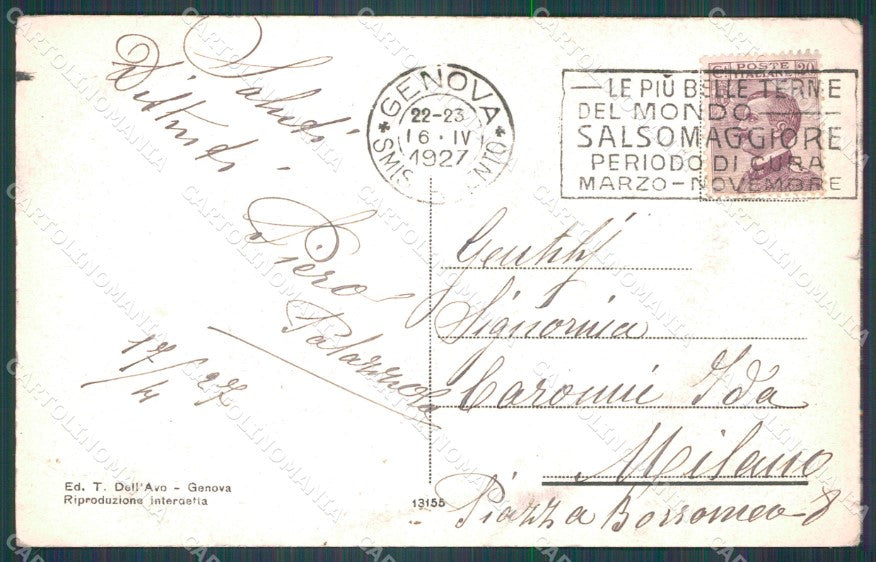 Saluti
Distinti
Piero
17/4 27
GENOVA
22-23
16 · IV
1927
LE PIÙ BELLE TERME
DEL MONDO
SALSOMAGGIORE
PERIODO DI CURA
MARZO-NOVEMBRE
POSTE
ITALIANE
Ct. 20
Gentilf
Signorina
Caronni Ida
Milano
Piazza Borromeo-8
Ed. T. Dell'Avo - Genova
Riproduzione interdetta
13155
CARTOLINOMANIA